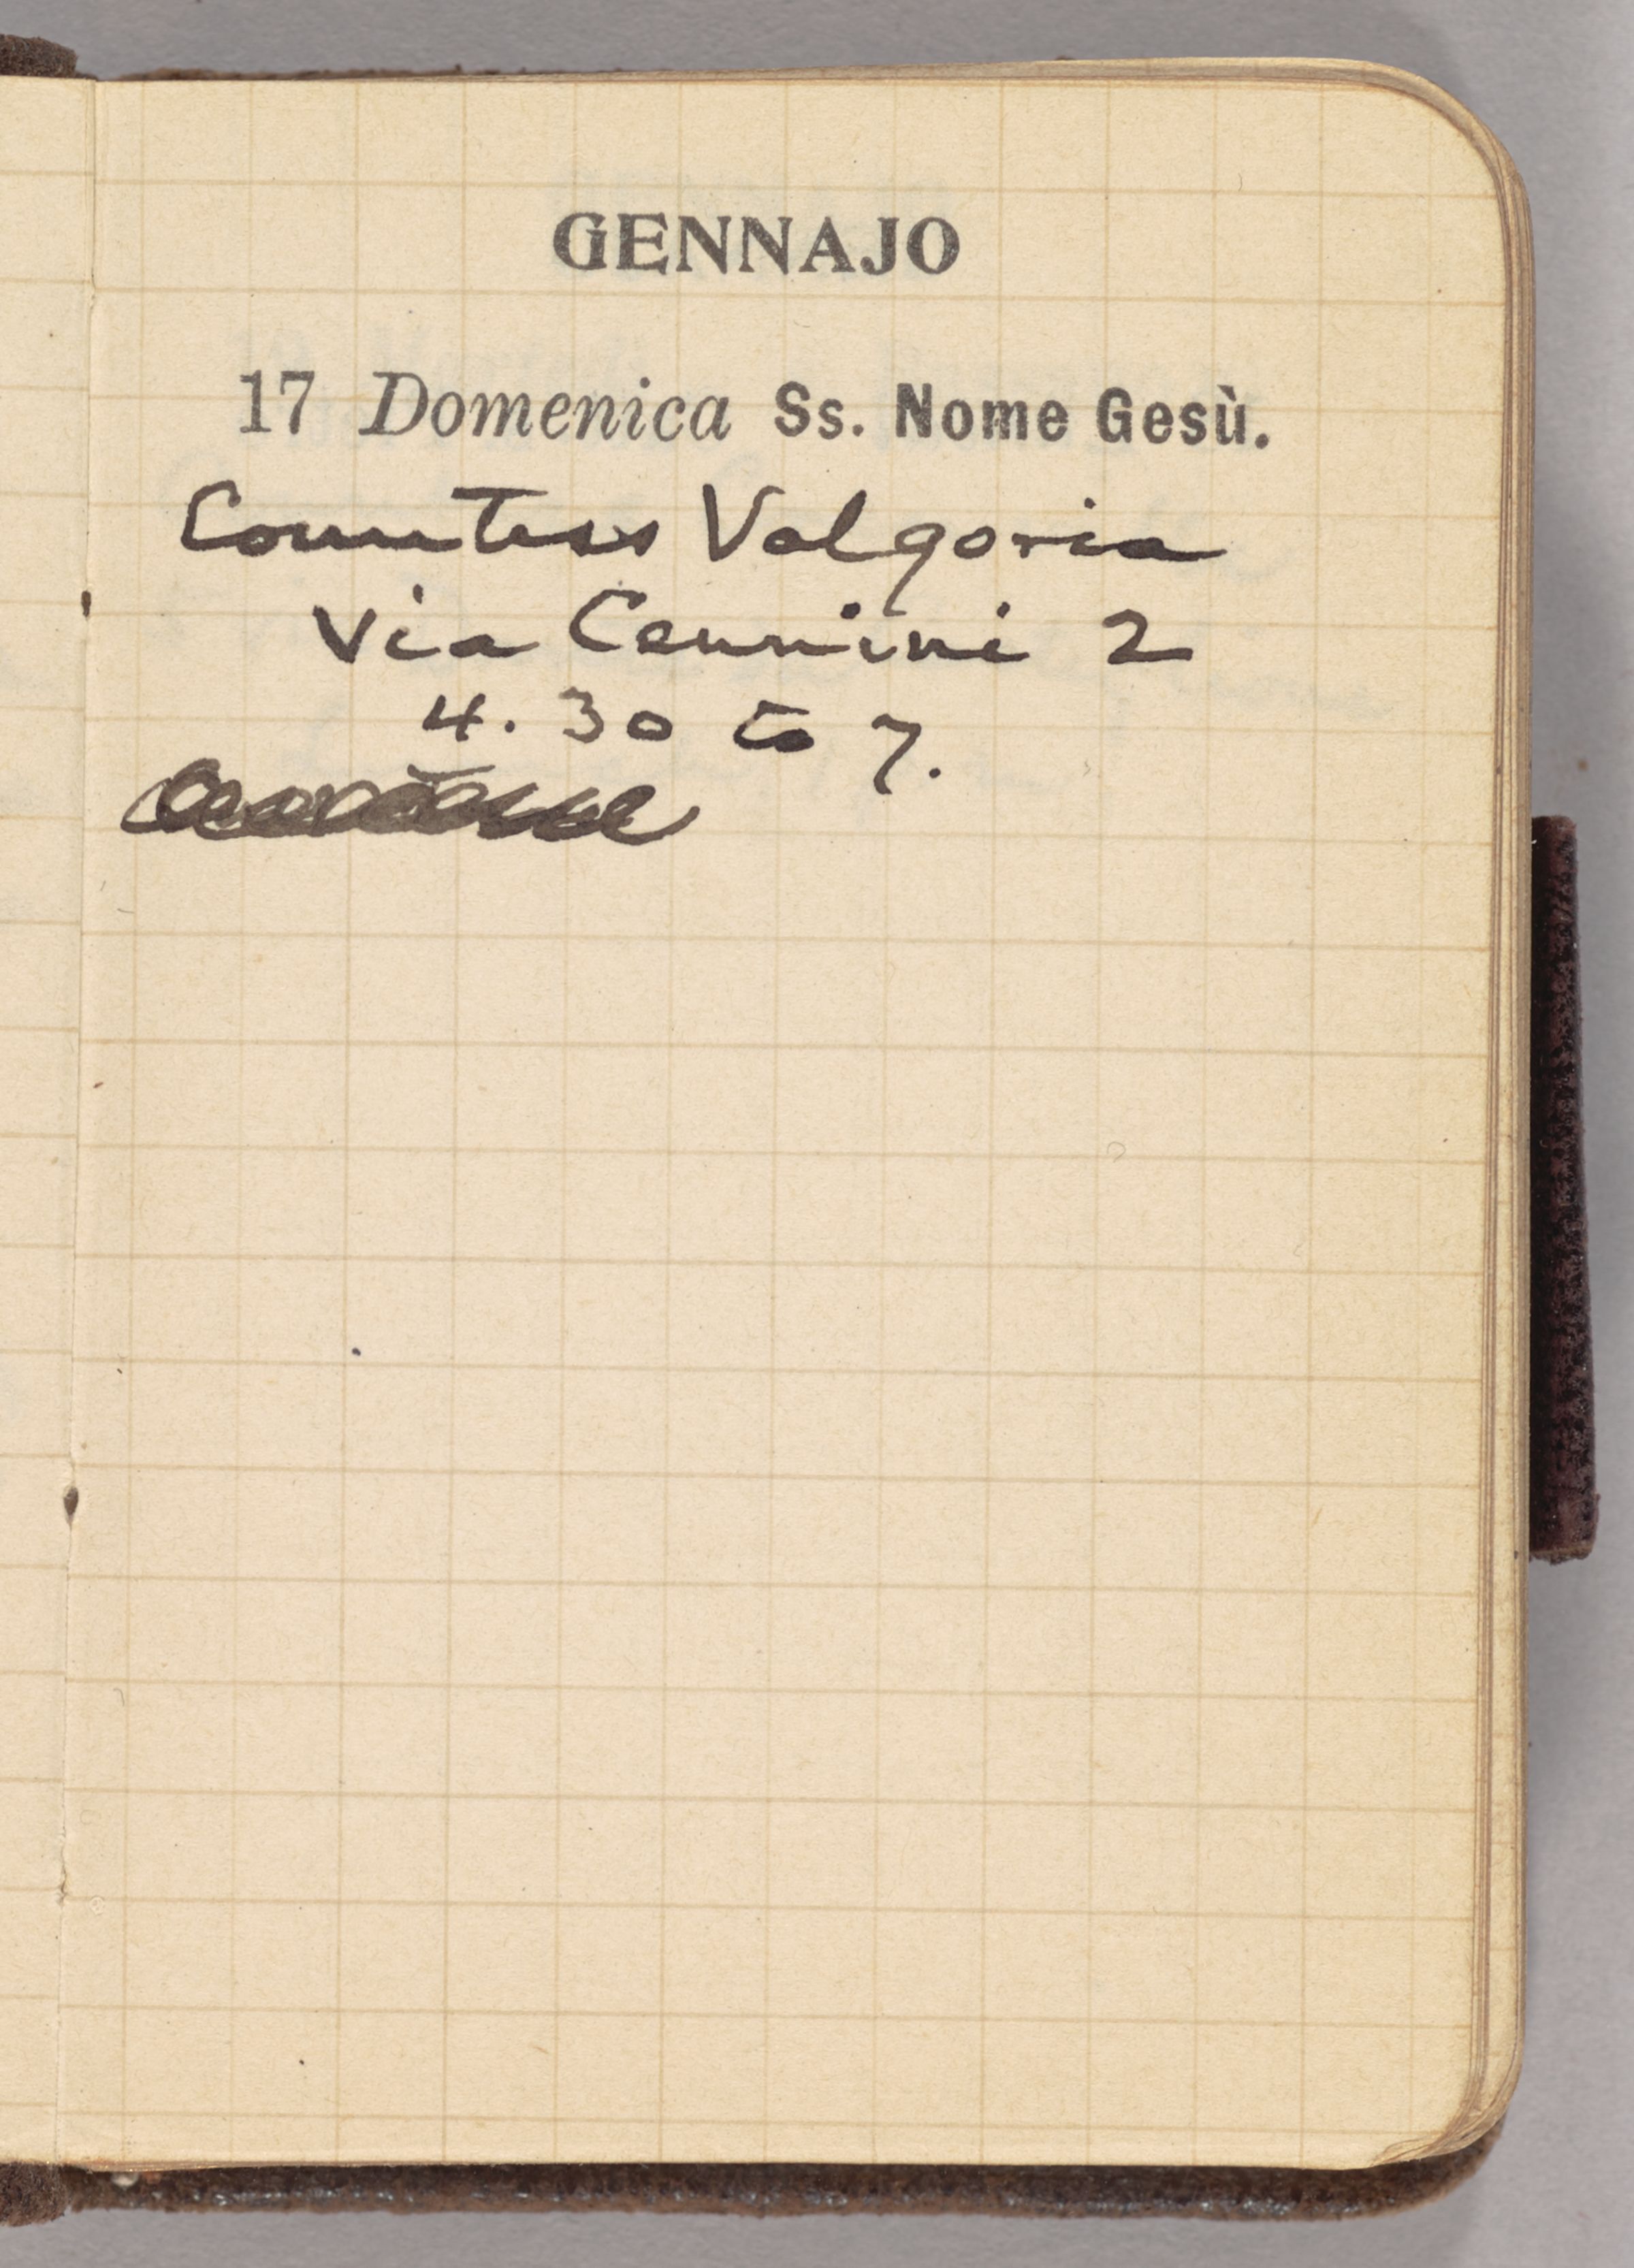 GENNAJO
17 Domenica Ss. Nome Gesù.
Countess Valgoria
Via Cennini 2
4.30 to 7.